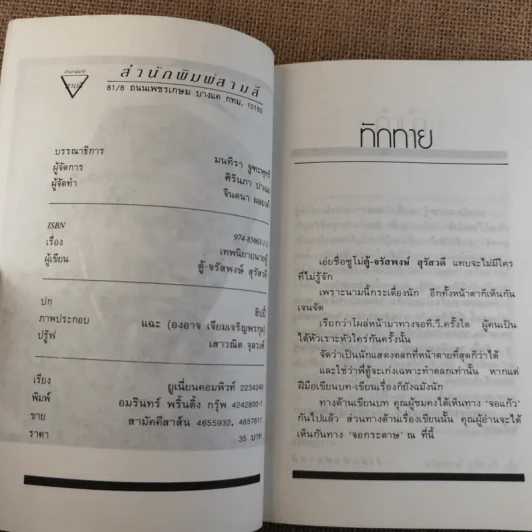 สำนักพิมพ์สามสี
81/8 ถนนเพชรเกษม บางแค กทม. 10160
บรรณาธิการ มนทิรา จูฑะพุทธิ
ผู้จัดการ ศิรินภา
ผู้จัดทำ จินตนา
ISBN 974-85663-1-1
เรื่อง เทพนิยายนายตู้
ผู้เขียน ตู้-จรัสพงษ์ สุรัสวดี
ปก ฮิปปี้
ภาพประกอบ แฉะ (องอาจ เจียมเจริญพรกุล)
ปรู๊ฟ เสาวณิต จุลวงศ์
เรียง ยูเนี่ยนคอมพิวท์ 2234246
พิมพ์ อมรินทร์ พริ้นติ้ง กรุ๊พ 4242800-1
ขาย สามัคคีสาส์น 4655932, 4657611
ราคา 35 บาท
ทักทาย
เอ่ยชื่อซูโม่ตู้-จรัสพงษ์ สุรัสวดี แทบจะไม่มีใคร
ที่ไม่รู้จัก
เพราะนามนี้กระเดื่องนัก อีกทั้งหน้าตาก็เห็นกัน
เจนจัด
เรียกว่าโผล่หน้ามาทางจอที.วี.ครั้งใด ผู้คนเป็น
ได้หัวเราะหัวใคร่กันครั้งนั้น
จัดว่าเป็นนักแสดงตลกที่หน้าตายที่สุดก็ว่าได้
และใช่ว่าพี่ตู้จะเก่งเฉพาะทำตลกเท่านั้น หากแต่
ฝีมือเขียนบท-เขียนเรื่องก็ยังฉมังนัก
ทางด้านเขียนบท คุณผู้ชมคงได้เห็นทาง 'จอแก้ว'
กันไปแล้ว ส่วนทางด้านเรื่องเขียนนั้น คุณผู้อ่านจะได้
เห็นกันทาง 'จอกระดาษ' ณ ที่นี้